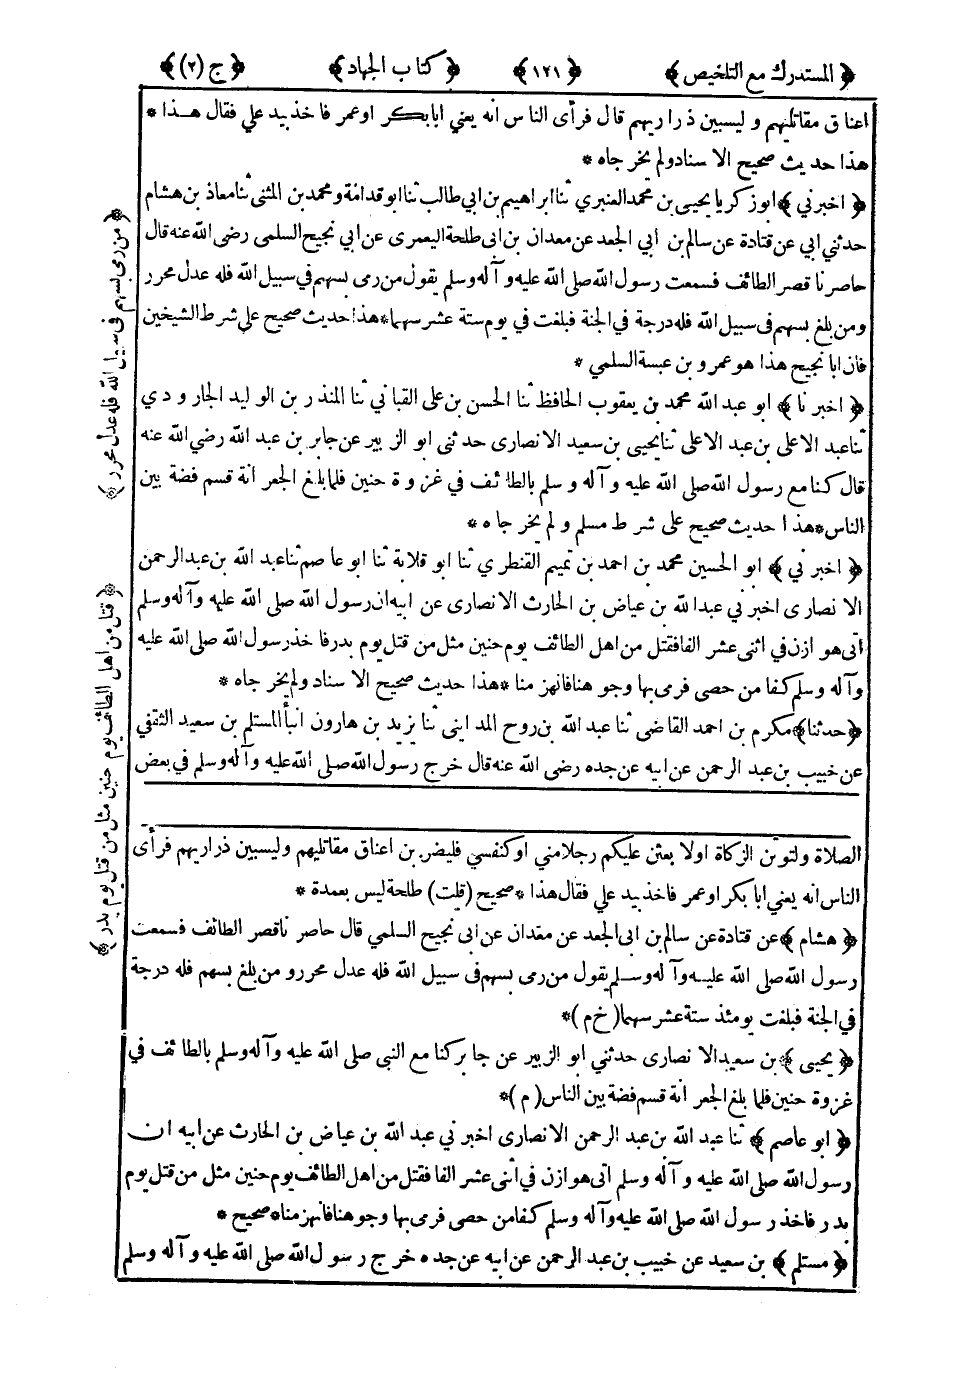 ﴿ المستدرك مع التلخيص ﴾ ﴿ ١٢١ ﴾ ﴿ كتاب الجهاد ﴾ ﴿ ج (٢) ﴾
اعناق مقاتليهم وليسبين ذراريهم قال فرأى الناس انه يعني ابابكر اوعمر فاخذبيد علي فقال هذا *
هذا حديث صحيح الاسناد ولم يخرجاه *
﴿ اخبرني ﴾ ابوزكريا يحيى بن محمد العنبري ثنا ابراهيم بن ابي طالب ثنا ابوقدامة ومحمد بن المثنى ثنا معاذ بن هشام
حدثني ابي عن قتادة عن سالم بن ابي الجعد عن معدان بن ابى طلحة اليعمرى عن ابي نجيح السلمى رضى الله عنه قال
حاصرنا قصر الطائف فسمعت رسول الله صلى الله عليه وآله وسلم يقول من رمى بسهم في سبيل الله فله عدل محرر
ومن بلغ بسهم فى سبيل الله فله درجة في الجنة فبلغت في يوم ستة عشر سهما * هذا حديث صحيح على شرط الشيخين
فان ابا نجيح هذا هو عمرو بن عبسة السلمي *
﴿ اخبرنا ﴾ ابو عبد الله محمد بن يعقوب الحافظ ثنا الحسن بن على القباني ثنا المنذر بن الوليد الجارودي
ثنا عبد الاعلى بن عبد الاعلى ثنا يحيى بن سعيد الانصارى حدثنى ابو الزبير عن جابر بن عبد الله رضي الله عنه
قال كنا مع رسول الله صلى الله عليه وآله وسلم بالطائف في غزوة حنين فلما بلغ الجعرانة قسم فضة بين
الناس * هذا حديث صحيح على شرط مسلم ولم يخرجاه *
﴿ اخبرني ﴾ ابو الحسين محمد بن احمد بن تميم القنطري ثنا ابو قلابة ثنا ابو عاصم ثنا عبد الله بن عبد الرحمن
الانصارى اخبرني عبد الله بن عياض بن الحارث الانصارى عن ابيه ان رسول الله صلى الله عليه وآله وسلم
اتى هوازن في اثنى عشر الفا فقتل من اهل الطائف يوم حنين مثل من قتل يوم بدر فاخذ رسول الله صلى الله عليه
وآله وسلم كفا من حصى فرمى بها وجوهنا فانهزمنا * هذا حديث صحيح الاسناد ولم يخرجاه *
﴿ حدثنا ﴾ مكرم بن احمد القاضى ثنا عبد الله بن روح المدايني ثنا يزيد بن هارون انبأ المستلم بن سعيد الثقفي
عن خبيب بن عبد الرحمن عن ابيه عن جده رضى الله عنه قال خرج رسول الله صلى الله عليه وآله وسلم في بعض
الصلاة ولتوتن الزكاة اولا بعثن عليكم رجلا مني اوكنفسي فليضربن اعناق مقاتليهم وليسبين ذراريهم فرأى
الناس انه يعني ابا بكر اوعمر فاخذ بيد علي فقال هذا * صحيح (قلت) طلحة ليس بعمدة *
﴿ هشام ﴾ عن قتادة عن سالم بن ابى الجعد عن معدان عن ابى نجيح السلمي قال حاصرنا قصر الطائف فسمعت
رسول الله صلى الله عليه وآله وسلم يقول من رمى بسهم فى سبيل الله فله عدل محرر ومن بلغ بسهم فله درجة
في الجنة فبلغت يومئذ ستة عشر سهما (خ م) *
﴿ يحيى ﴾ بن سعيد الانصارى حدثني ابو الزبير عن جابر كنا مع النبي صلى الله عليه وآله وسلم بالطائف في
غزوة حنين فلما بلغ الجعرانة قسم فضة بين الناس (م) *
﴿ ابو عاصم ﴾ ثنا عبد الله بن عبد الرحمن الانصارى اخبرني عبد الله بن عياض بن الحارث عن ابيه ان
رسول الله صلى الله عليه وآله وسلم اتى هوازن في اثنى عشر الفا فقتل من اهل الطائف يوم حنين مثل من قتل يوم
بدر فاخذ رسول الله صلى الله عليه وآله وسلم كفا من حصى فرمى بها وجوهنا فانهزمنا * صحيح *
﴿ مستلم ﴾ بن سعيد عن خبيب بن عبد الرحمن عن ابيه عن جده خرج رسول الله صلى الله عليه وآله وسلم
﴿ من رمى بسهم فى سبيل الله فله عدل محرر ﴾
﴿ قتل من اهل الطائف يوم حنين مثل من قتل يوم بدر ﴾